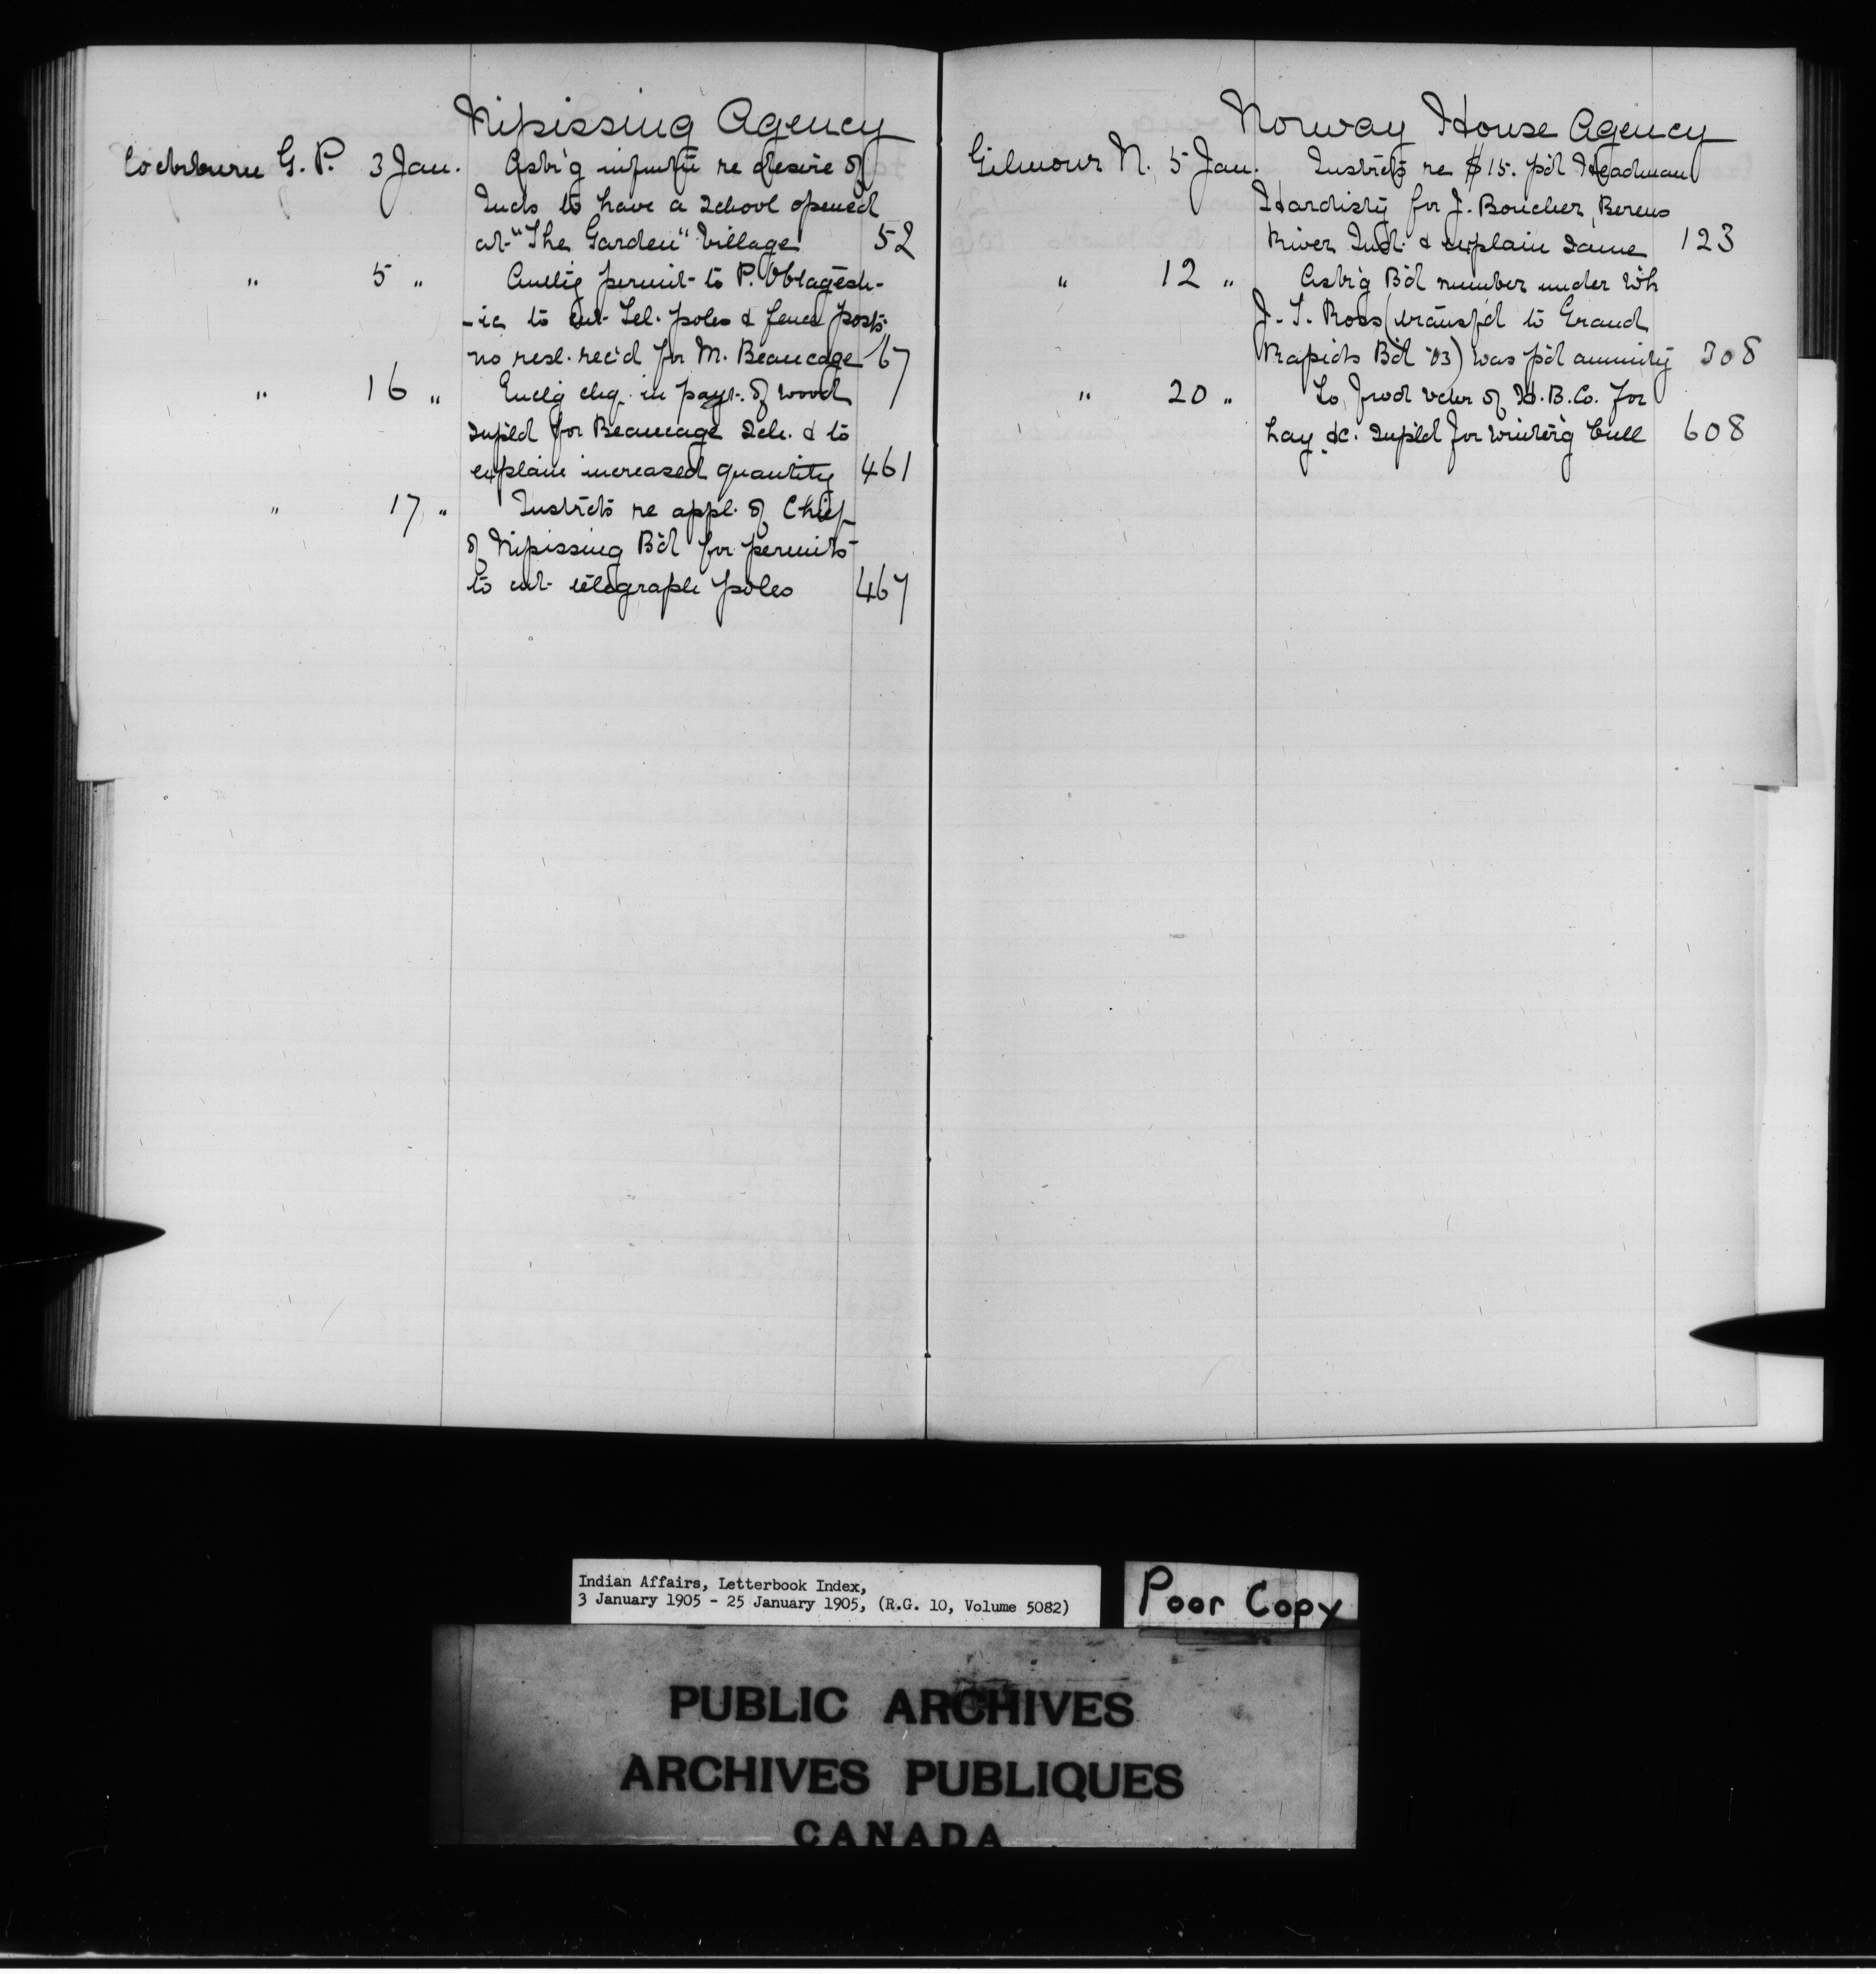 Nipissing Agency
Cockburn G. P. 3 Jan. Ask'g inf'm't'n re desire of
Inds to have a School opened
at "The Garden" Village 52
" 5 " permit to P.
to cut Tel. poles & fence posts,
no resl. rec'd for M. Beaucage 67
" 16 " Encl'g chq. in payt. of wood
supl'd for Beaucage Sch. & to
explain increased quantity 461
" 17 " Instr'cts re appl. of Chief
of Nipissing B'd for permits
to cut telegraph poles 467
Norway House Agency
Gilmour N. 5 Jan. Instr'cts re $15. p'd Headman
Hardisty for J. Boucher, Berens
River Ind. & explain same 123
" 12 " Ask'g B'd number under wh
J. T. Ross (transf'd to Grand
Rapids B'd '03) was p'd annuity 308
" 20 " To prod vchr of H. B. Co. for
hay &c. supl'd for winter'g bull 608
Indian Affairs, Letterbook Index,
3 January 1905 - 25 January 1905, (R.G. 10, Volume 5082)
Poor Copy
PUBLIC ARCHIVES
ARCHIVES PUBLIQUES
CANADA